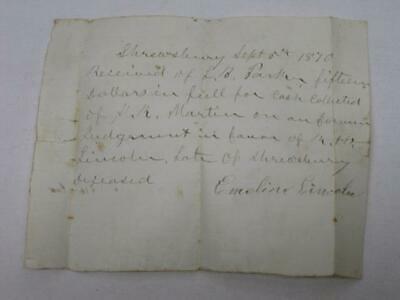 Shrewsbury Sept 5th 1870
Received of J. B. Parker, fifteen
Dollars in full for cash collected
of J. R. Martin on an
Judgement in favor of
Lincoln, Late of Shrewsbury
diseased
Emeline Lincoln